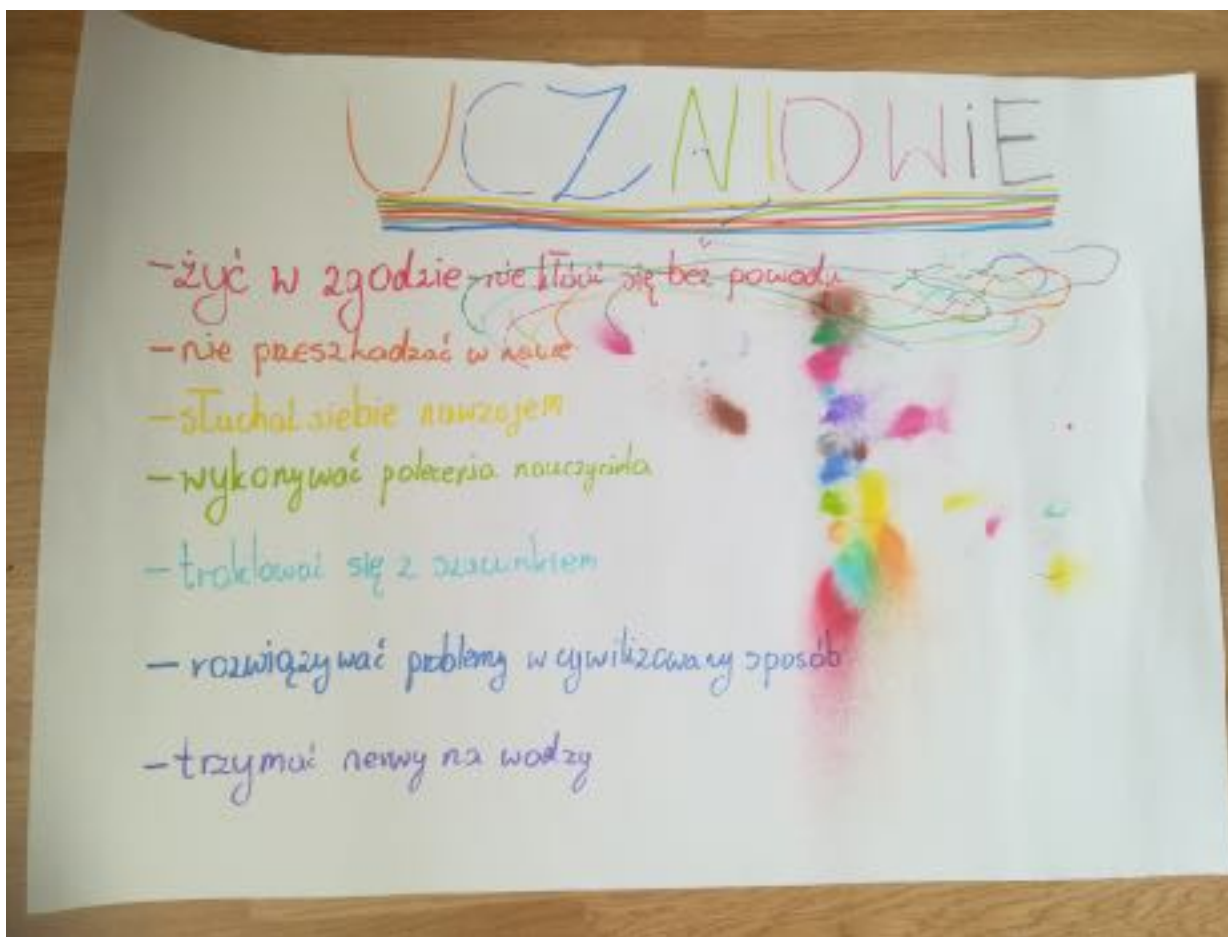 UCZNIOWiE
-żyć w zgodzie-nie kłócić się bez powodu
-nie przeszkadzać w nauce
-słuchać siebie nawzajem
-wykonywać polecenia nauczyciela
-traktować się z szacunkiem
-rozwiązywać problemy w cywilizowany sposób
-trzymać nerwy na wodzy